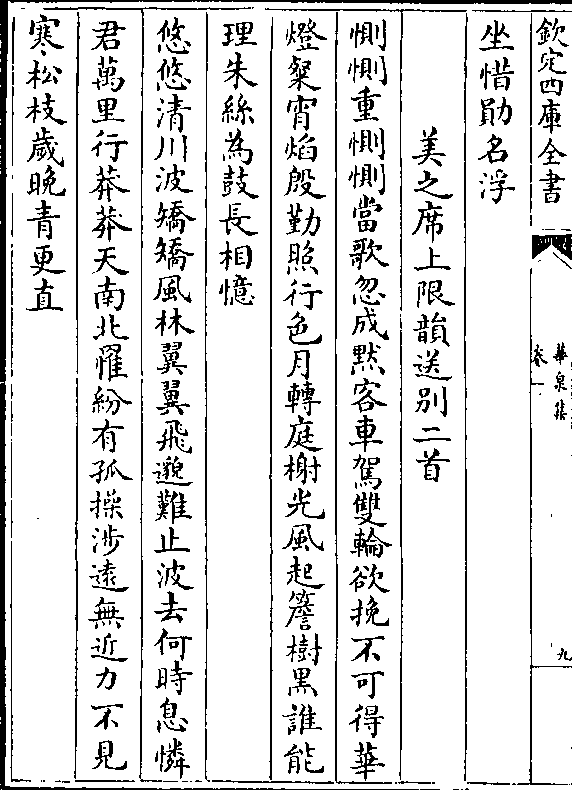 欽定四庫全書
華泉集
卷一
九
坐惜勛名浮
美之席上限韻送别二首
惻惻重惻惻當歌忽成默客車駕雙輪欲挽不可得華
燈粲宵焰殷勤照行色月轉庭榭光風起簷樹黒誰能
理朱絲為鼓長相憶
悠悠清川波矯矯風林翼翼飛邈難止波去何時息憐
君萬里行莽莽天南北罹紛有孤操涉遠無近力不見
寒松枝歲晚青更直